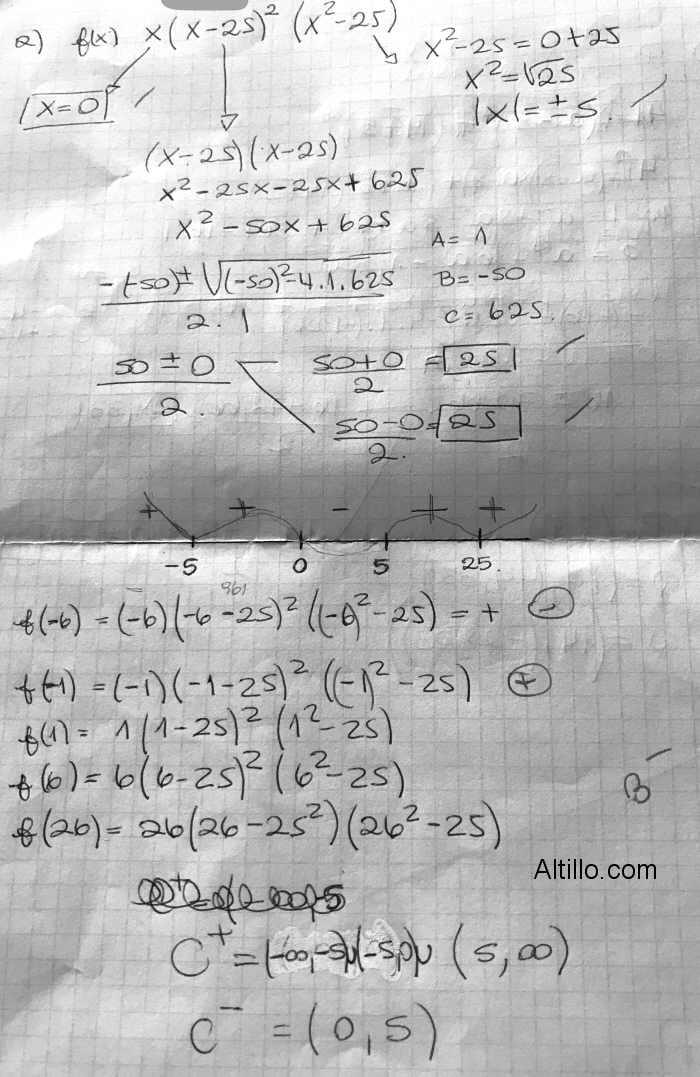 2) f(x) x(x-25)² (x²-25)
x²-25=0+25
x²=√25
|x|=±5.
x=0
(x-25)(x-25)
x²-25x-25x+625
x²-50x+625
A= 1
B=-50
C=625.
-(-50)±√(-50)²-4.1.625
2.1
50±0
2.
50+0
2
=25
50-0
2.
=25
+ + - + +
-5 0 5 25.
961
f(-6) = (-6)(-6-25)² ((-6)²-25) = + -
f(-1) = (-1)(-1-25)² ((-1)²-25) +
f(1)= 1(1-25)² (1²-25)
f(6)= 6(6-25)² (6²-25)
f(26)= 26(26-25²)(26²-25)
B-
Altillo.com
C⁺=(-∞,-5)∪(-5,0)∪(5,∞)
C⁻ = (0,5)